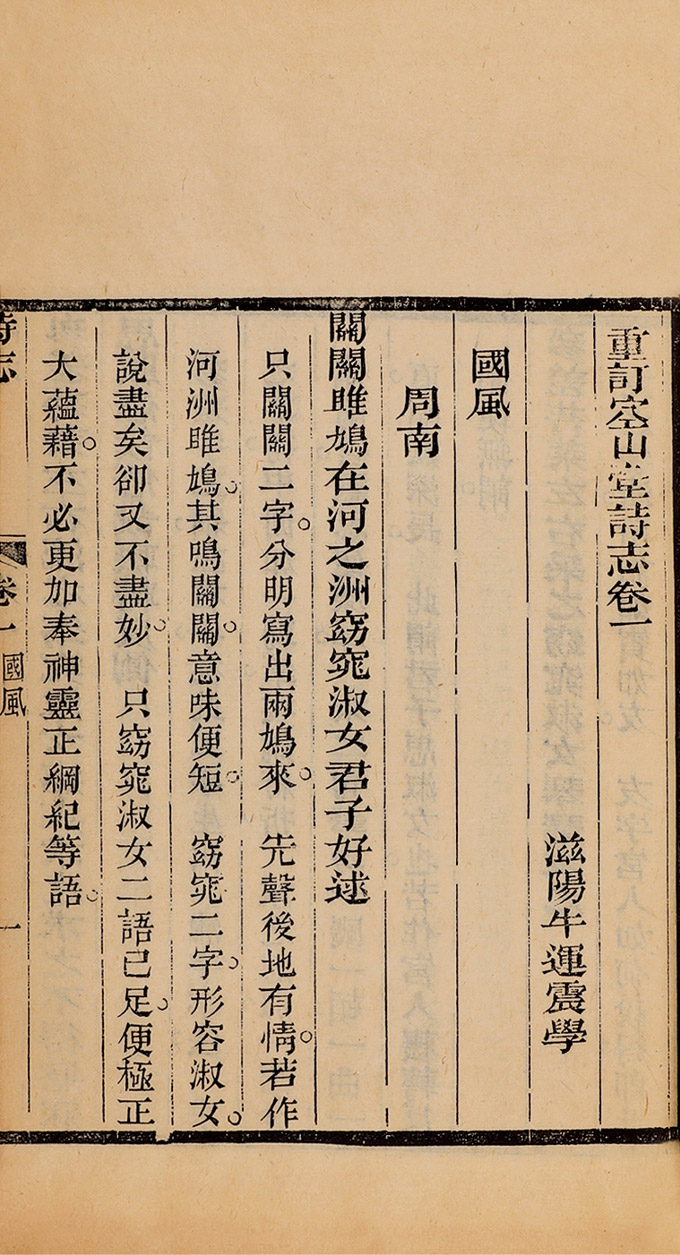 重訂空山堂詩志卷一
滋陽牛運震學
國風
周南
關關雎鳩在河之洲窈窕淑女君子好逑
只關關二字。分明寫出兩鳩來。　先聲後地有情。若作
河洲雎鳩。其鳴關關。意味便短。　窈窕二字。形容淑女。
說盡矣卻又不盡妙。　只窈窕淑女二語已足。便極正
大蘊藉。不必更加奉神靈正綱紀等語。
詩志
卷一
國風
一